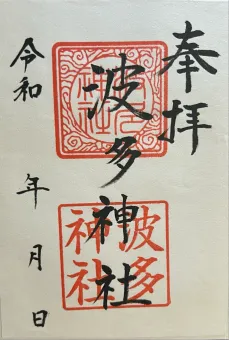 奉拝
波多神社
波多
神社
令和　年　月　日